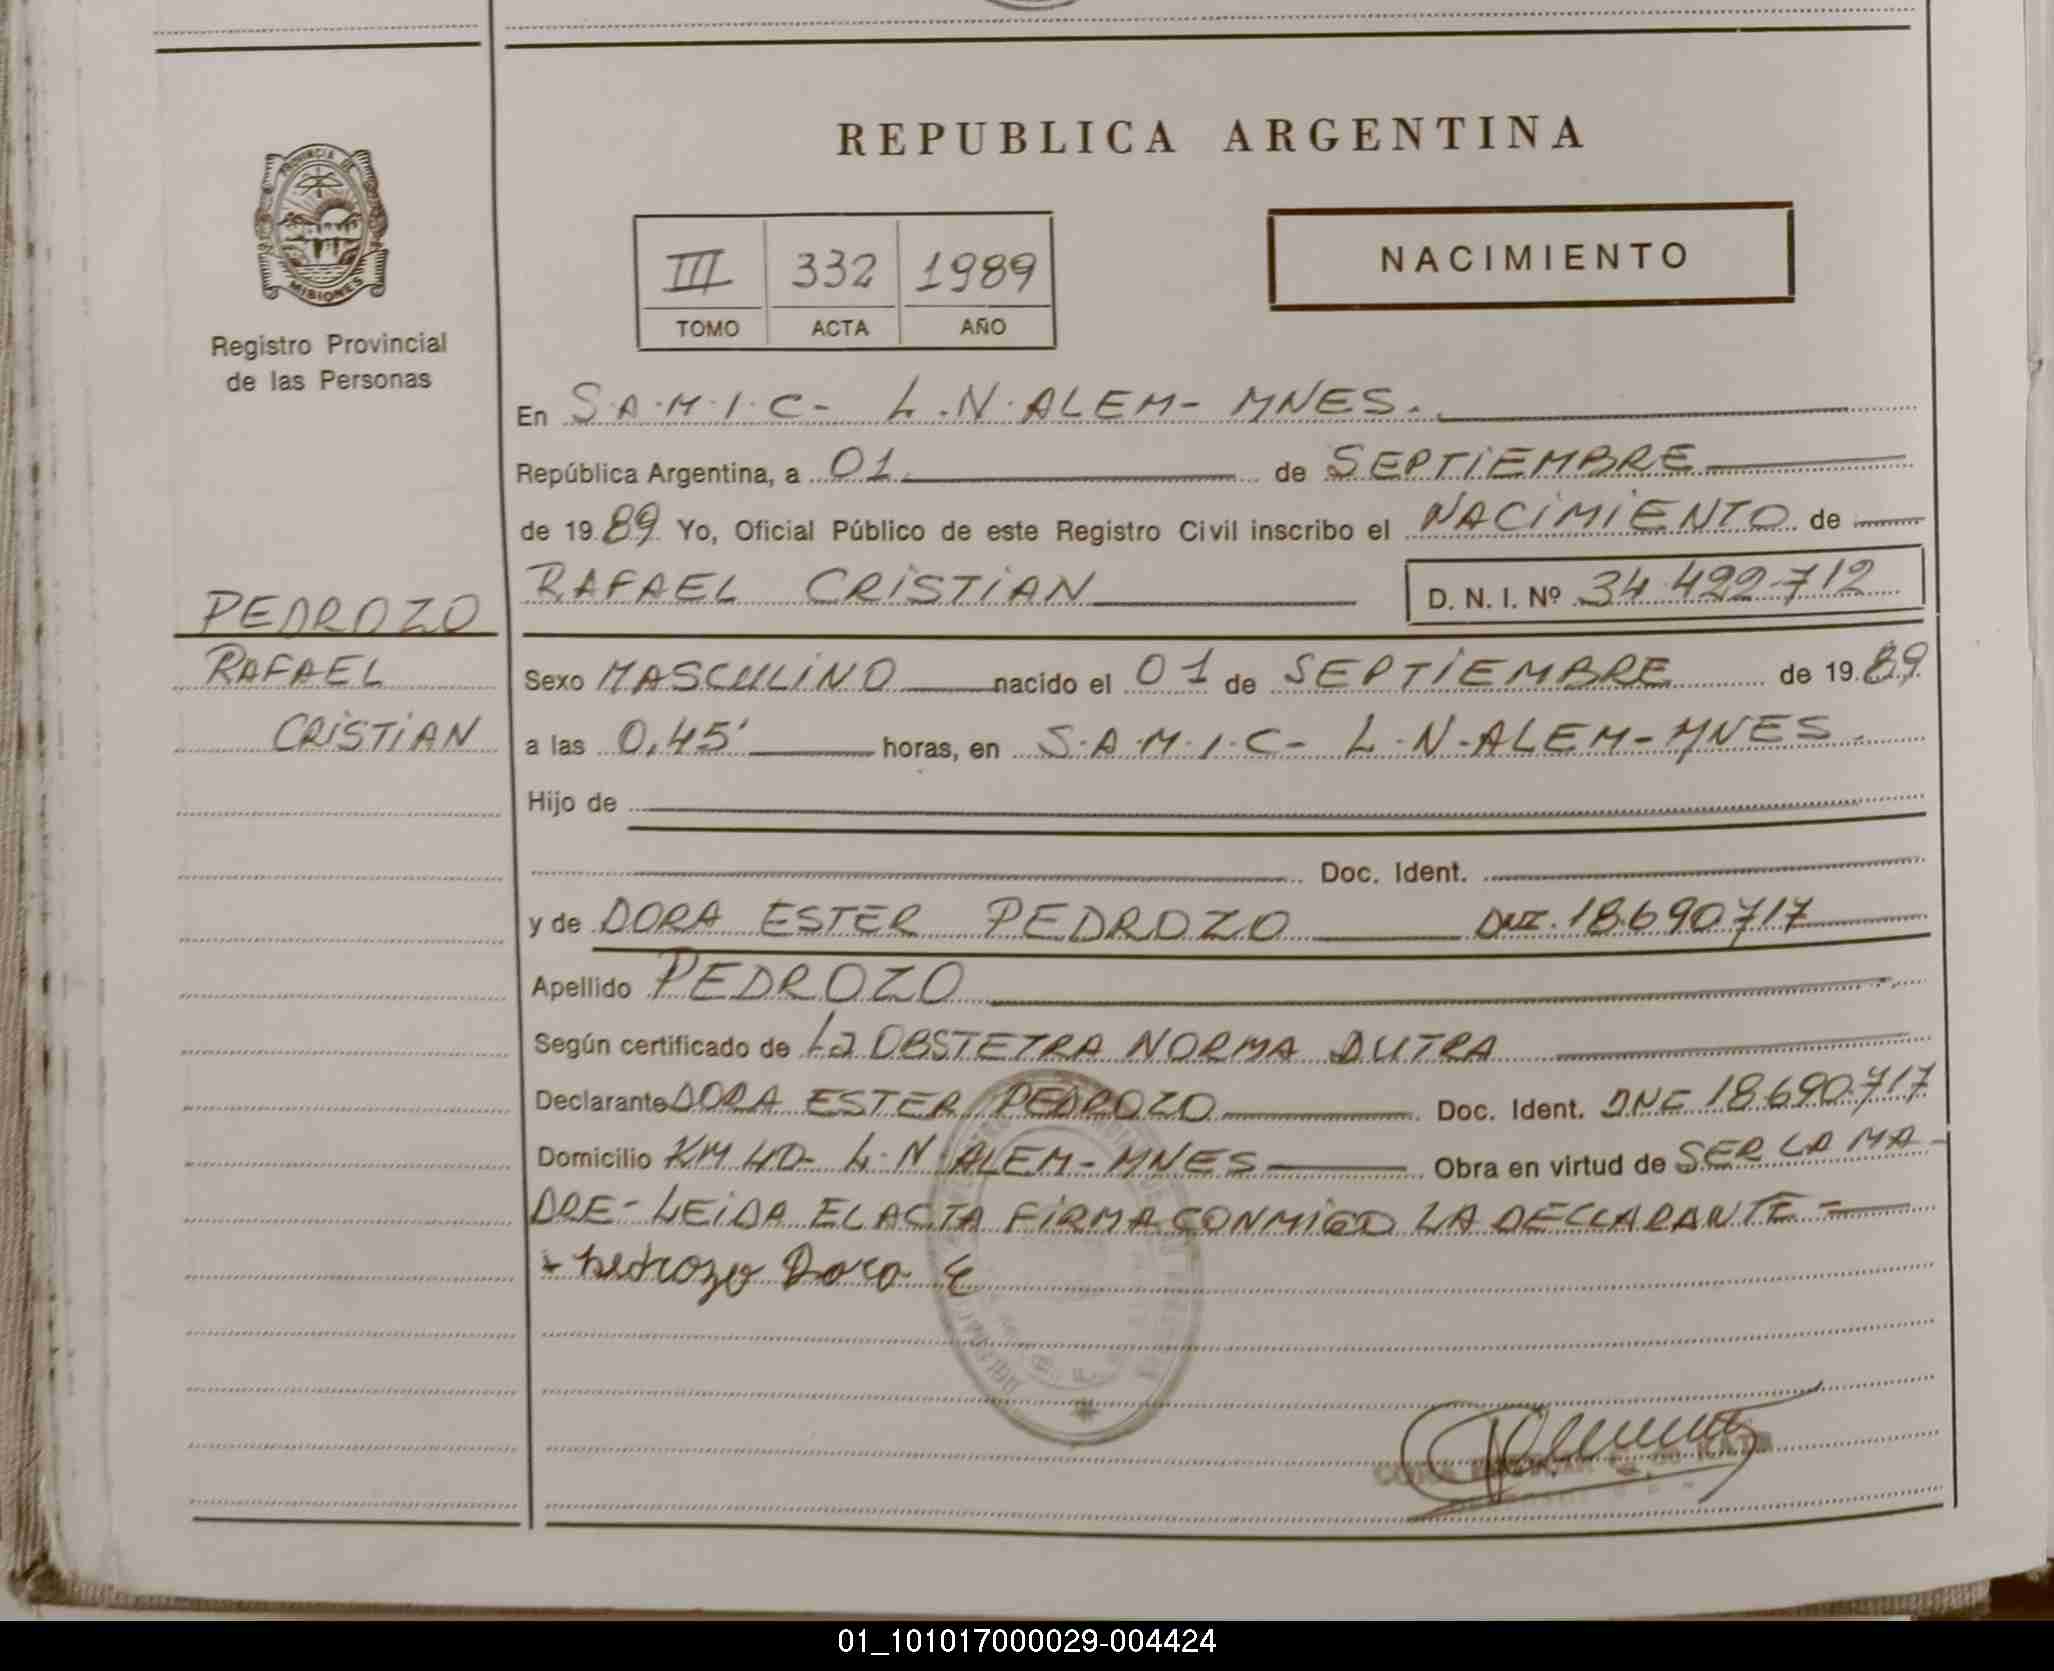 REPUBLICA ARGENTINA
PROVINCIA DE
MISIONES
Registro Provincial
de las Personas
III 332 1989
TOMO ACTA AÑO
NACIMIENTO
En S.A.M.I.C- L.N.ALEM- MNES.
República Argentina, a 01 de SEPTIEMBRE
de 1989 Yo, Oficial Público de este Registro Civil inscribo el NACIMIENTO de
RAFAEL CRISTIAN D. N. I. Nº 34.422.712
PEDROZO
RAFAEL
CRISTIAN
Sexo MASCULINO nacido el 01 de SEPTIEMBRE de 1989
a las 0,45' horas, en S.A.M.I.C- L.N.ALEM-MNES.
Hijo de
Doc. Ident.
y de DORA ESTER PEDROZO DNI.18.690.717
Apellido PEDROZO
Según certificado de La OBSTETRA NORMA DUTRA
Declarante DORA ESTER PEDROZO Doc. Ident. DNI 18.690.717
Domicilio KM 40- L.N.ALEM-MNES Obra en virtud de SER LA MA-
DRE- LEIDA EL ACTA FIRMA CONMIGO LA DECLARANTE=
Pedrozo Dora E
01_101017000029-004424